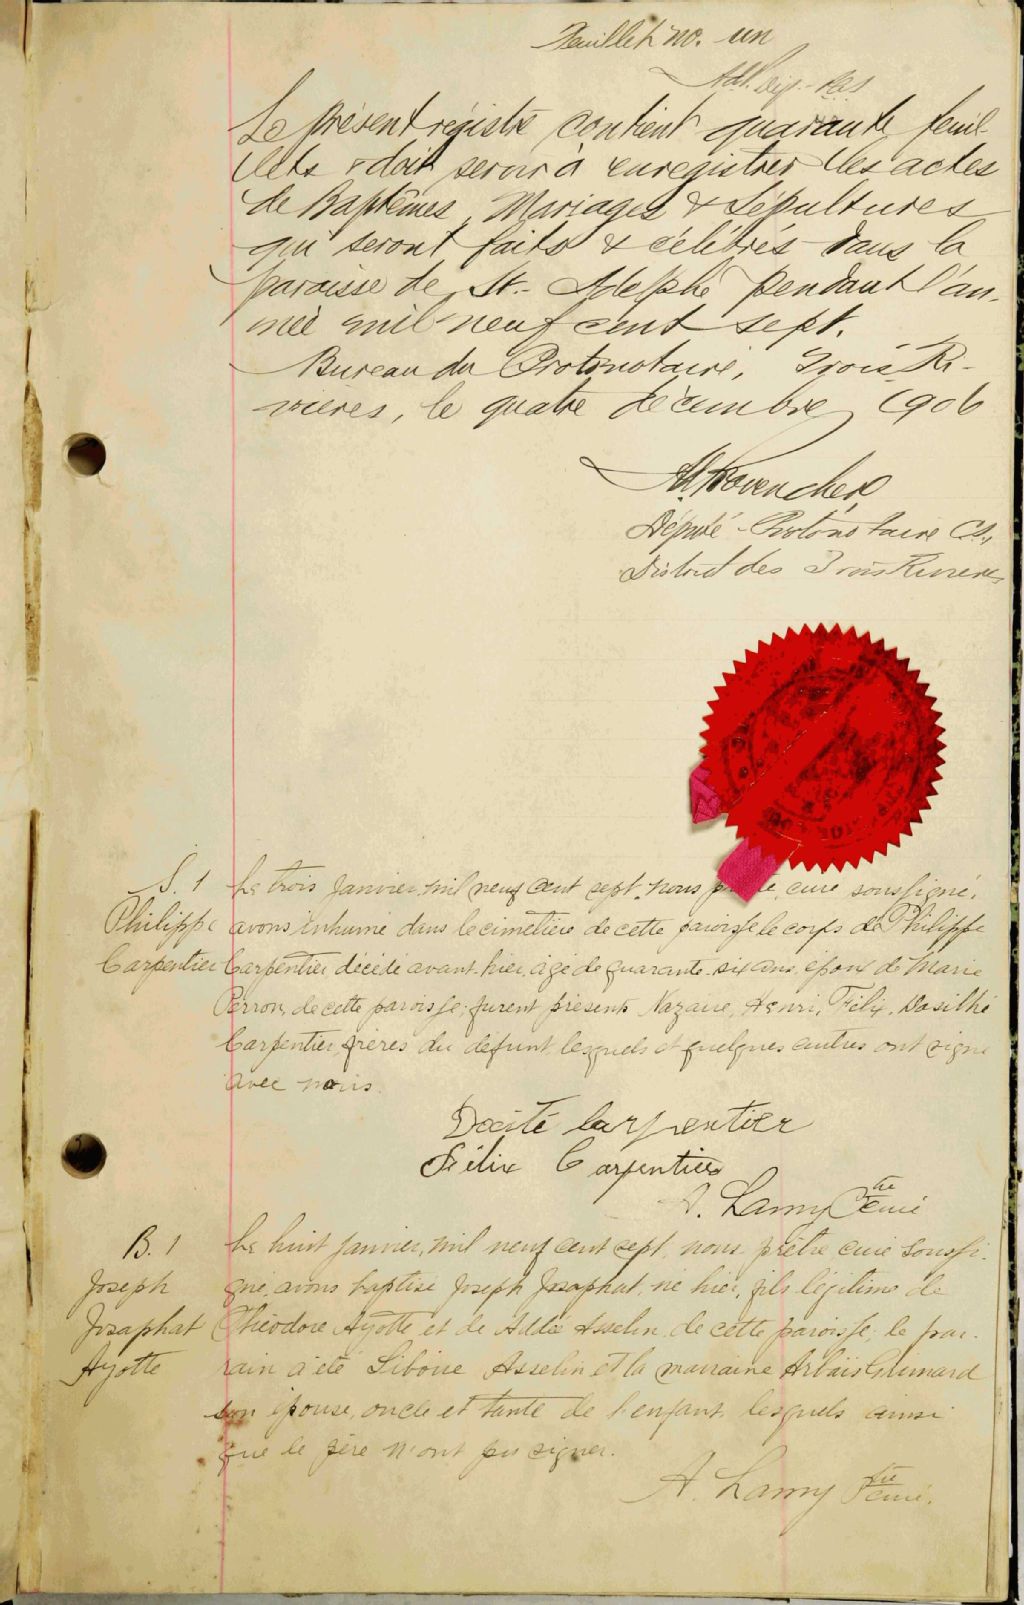 Feuillet no. un
Le présent régistre contient quarante feuil-
lets & doit servir à enregistrer les actes
de Baptêmes, Mariages & Sépultures
qui seront faits & célébrés dans la
paroisse de St.- Adelphe pendant l'an-
née mil neuf cent sept.
Bureau du Protonotaire, Trois-Ri-
vières, le quatre décembre 1906
Provencher
Député-Protonotaire C.S.,
District des Trois Rivières
S. 1
Philippe
Carpentier
Le trois Janvier, mil neuf cent sept, nous prêtre, curé soussigné,
avons inhumé dans le cimetière de cette paroisse le corps de Philippe
Carpentier décédé avant-hier, âgé de quarante-six ans, époux de Marie
Perron, de cette paroisse; furent présents Nazaire, Henri, Félix, Dosithé
Carpentier, frères du défunt, lesquels et quelques autres ont signé
avec nous.
Dosité Carpentier
Félix Carpentier
A. Lamy Ptre Curé
B. 1
Joseph
Josaphat
Ayotte
Le huit Janvier, mil neuf cent sept, nous prêtre curé soussi-
gné, avons baptisé Joseph Josaphat, né hier, fils légitime de
Théodore Ayotte et de Asselin de cette paroisse; le par-
rain a été Liboire Asselin et la marraine Guimard
son épouse, oncle et tante de l'enfant, lesquels ainsi
que le père n'ont pu signer.
A. Lamy Ptre Curé.